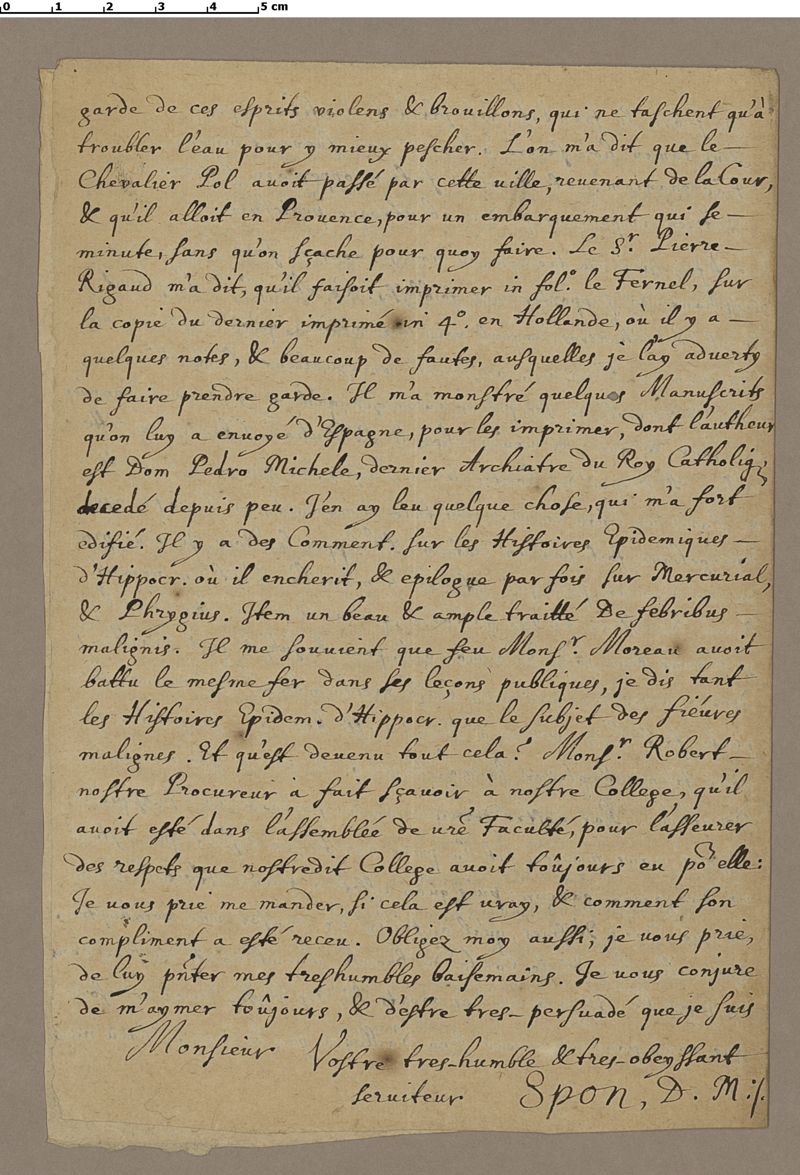 0 1 2 3 4 5 cm
garde de ces esprits violens & brouillons, qui ne taschent qu'à
troubler l'eau pour y mieux pescher. L'on m'a dit que le —
Chevalier Pol avoit passé par cette ville, revenant de la Cour,
& qu'il alloit en Provence, pour un embarquement qui se —
minute, sans qu'on sçache pour quoy faire. Le Sr. Pierre —
Rigaud m'a dit, qu'il faisoit imprimer in fol.o le Fernel, sur
la copie du dernier imprimé in 4o. en Hollande, où il y a —
quelques notes, & beaucoup de fautes, ausquelles je l'ay adverty
de faire prendre garde. Il m'a monstré quelques Manuscrits
qu'on luy a envoyé d'Espagne, pour les imprimer, dont l'autheur
est Dom Pedro Michele, dernier Archiatre du Roy Catholiq;
decedé depuis peu. J'en ay leu quelque chose, qui m'a fort
edifié. Il y a des Comment. sur les Histoires Epidemiques —
d'Hippocr. où il encherit, & epilogue par fois sur Mercurial,
& Phrygius. Item un beau & ample traitté De febribus —
malignis. Il me souvient que feu Monsr. Moreau avoit
battu le mesme fer dans ses leçons publiques, je dis tant
les Histoires Epidem. d'Hippocr. que le subjet des fiévres
malignes. Et qu'est devenu tout cela? Monsr. Robert —
nostre Procureur a fait sçavoir à nostre College, qu'il
avoit esté dans l'assemblée de vre Faculté, pour l'asseurer
des respects que nostredit College avoit toûjours eu por elle:
Je vous prie me mander, si cela est vray, & comment son
compliment a esté receu. Obligez moy aussi, je vous prie,
de luy pnter mes treshumbles baisemains. Je vous conjure
de m'aymer toûjours, & d'estre tres-persuadé que je suis
Monsieur Vostre tres-humble & tres-obeyssant
serviteur Spon, D. M./.